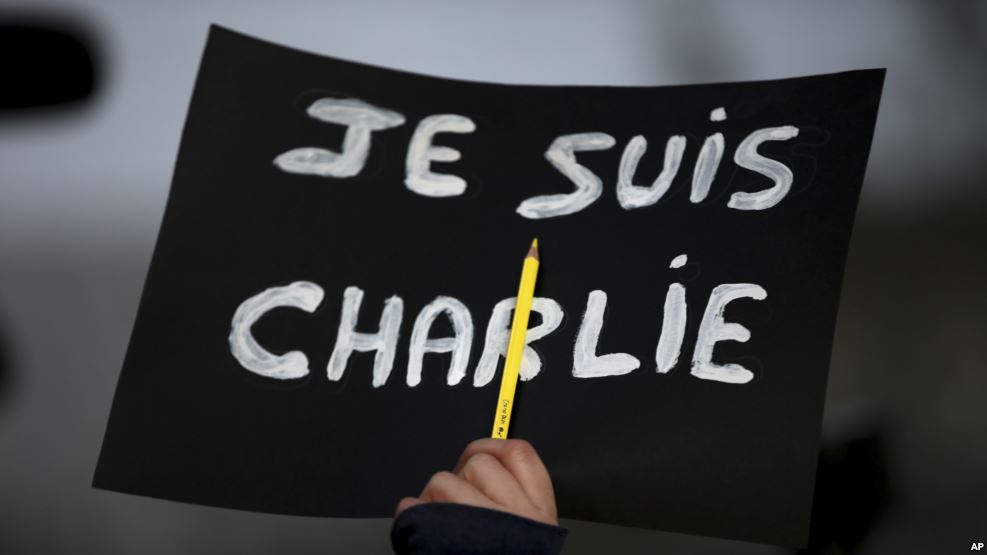 JE SUiS
CHARLiE
AP